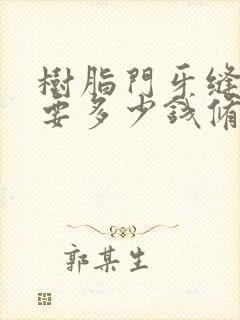 樹脂門牙縫
要多少錢備
郭某生